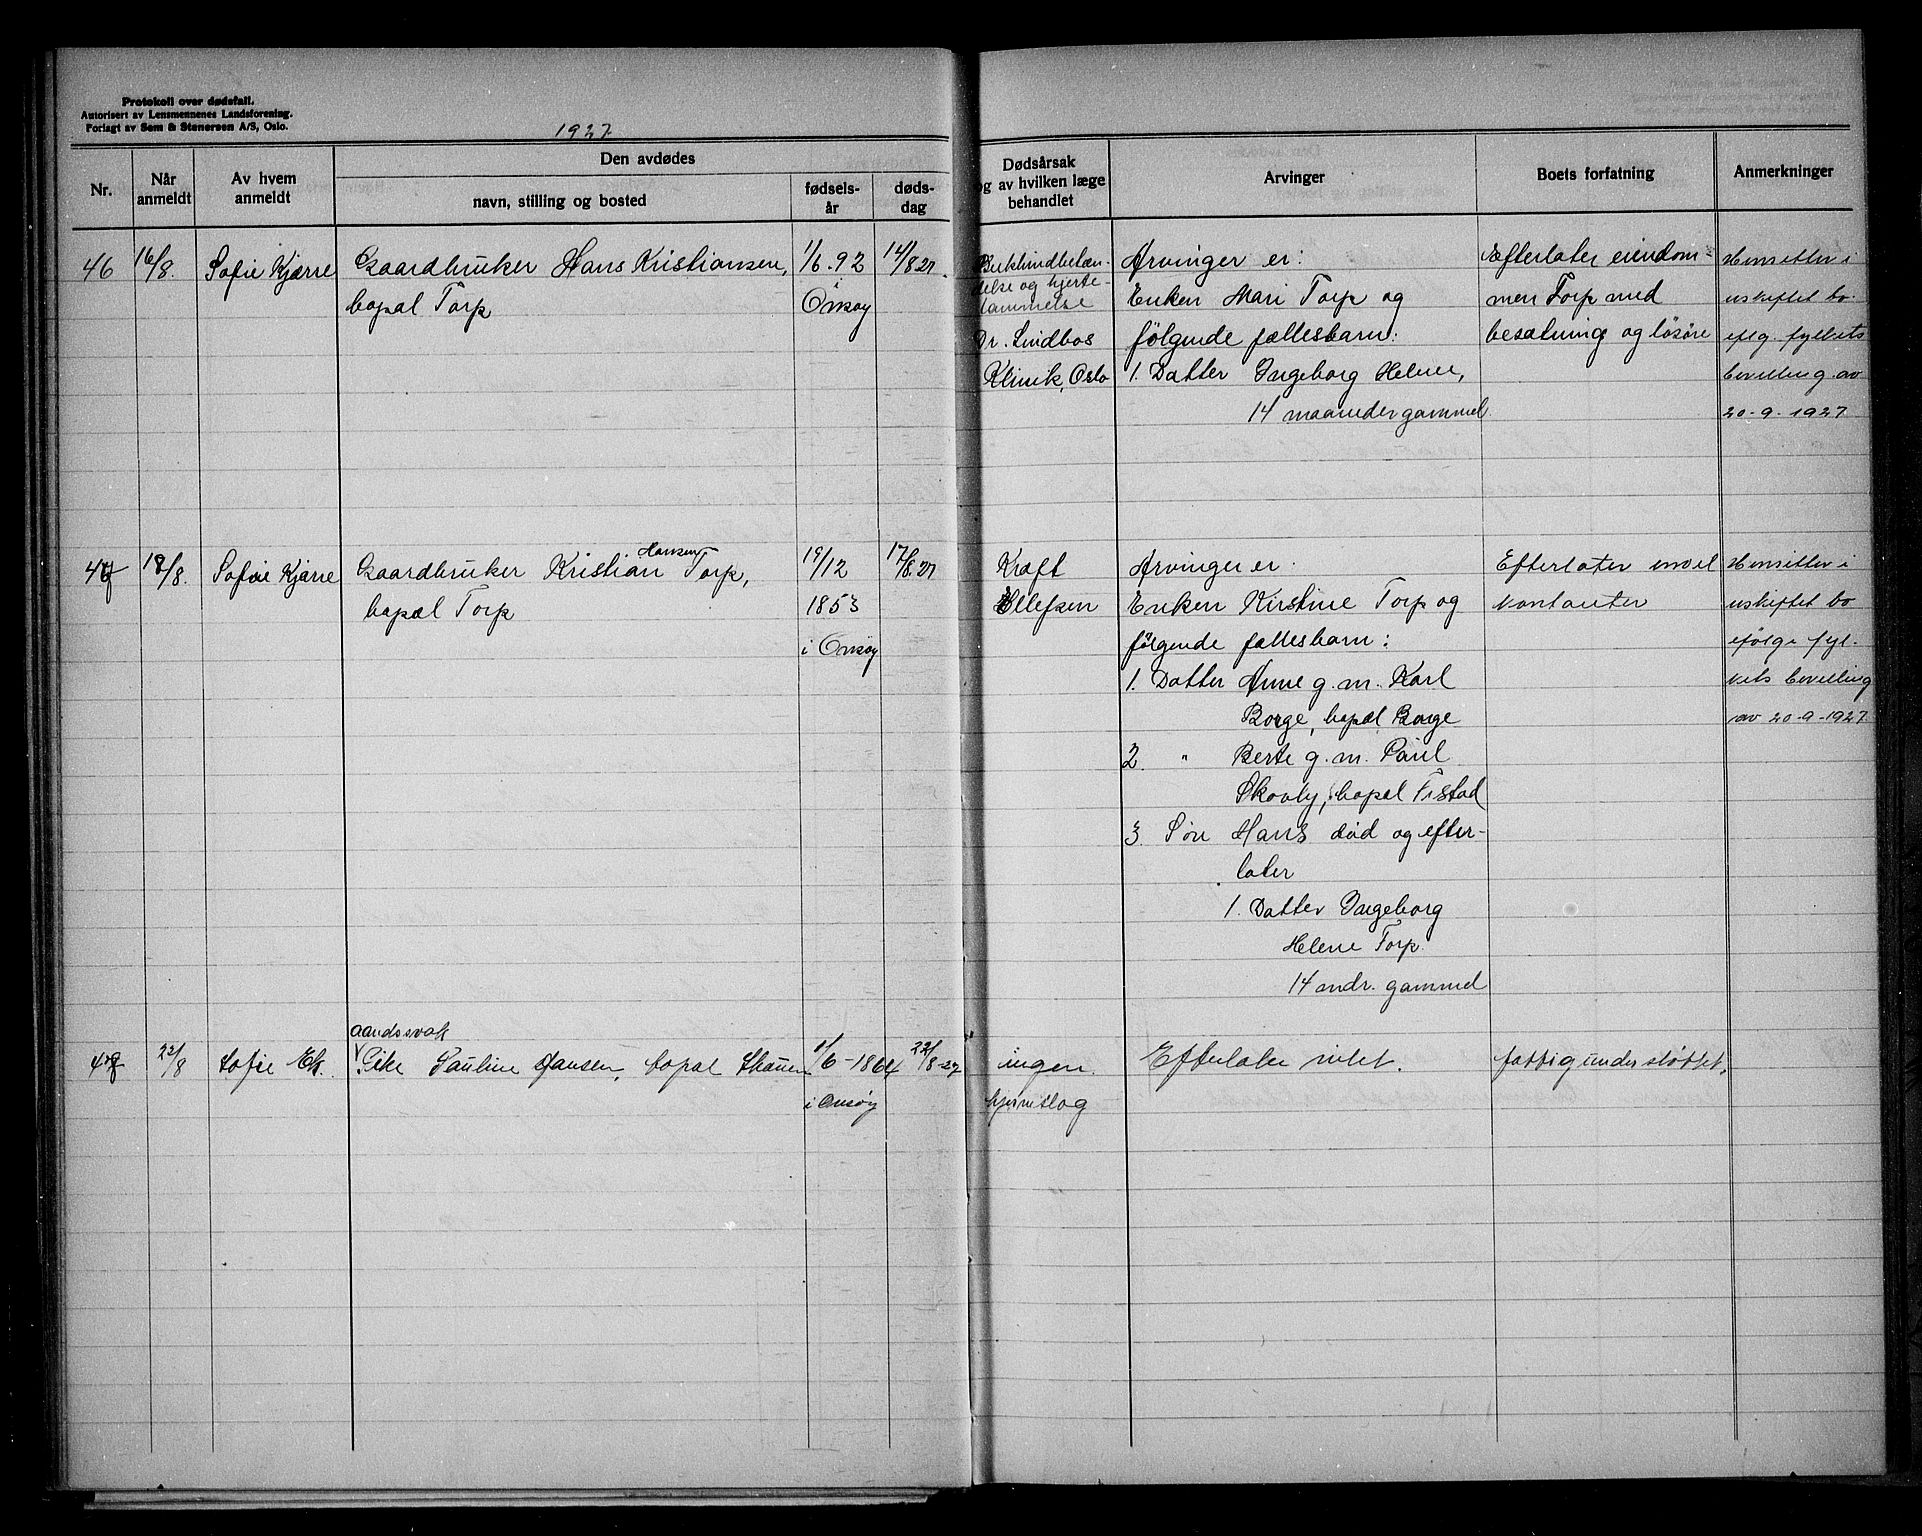 Protokoll over dødsfall.
Autorisert av Lensmennenes Landsforening.
Forlagt av Sem & Stenersen A/S, Oslo.
1927
Nr.
Når anmeldt
Av hvem anmeldt
Den avdødes
navn, stilling og bosted
fødsels-år
døds-dag
Dødsårsak
og av hvilken læge
behandlet
Arvinger
Boets forfatning
Anmerkninger
46
16/8.
Sofie Kjærre
Gaardbruker Hans Kristiansen,
bopæl Torp
1/6.92
Onsøy
14/8 27.
Bukhindbetæn-
delse og hjerte-
lammelse
Dr. Lindbos
Klinik, Oslo
Arvinger er:
Enken Mari Torp og
følgende fællesbarn:
1. Datter Ingeborg Helene,
14 maaneder gammel
Efterlater eiendom-
men Torp med
besætning og løsøre
Hensitter i
uskiftet bo
eflg. fylkets
bevilling av
20-9-1927
47
18/8.
Sofie Kjærre
Hansen
Gaardbruker Kristian Torp,
bopæl Torp
19/12
1853
i Onsøy
17/8.27
Kræft
Ellefsen
Arvinger er:
Enken Kirstine Torp og
følgende fællesbarn:
1. Datter Anne g. m. Karl
Borge, bopæl Borge
2. " Berte g. m. Paul
Skovly, bopæl Tistad
3. Søn Hans død og efter-
later
1. Datter Ingeborg
Helene Torp
14 mdr. gammel
Efterlater endel
kontanter
Hensitter i
uskiftet bo
ifølge fyl-
kets bevilling
av 20-9-1927
22/8
Sofie Ek.
aandssvak
Pauline Hansen, bopæl
/6-1864
i Onsøy
22/8-27
ingen.
hjerneslag
Efterlater intet.
fattigunderstøttet.